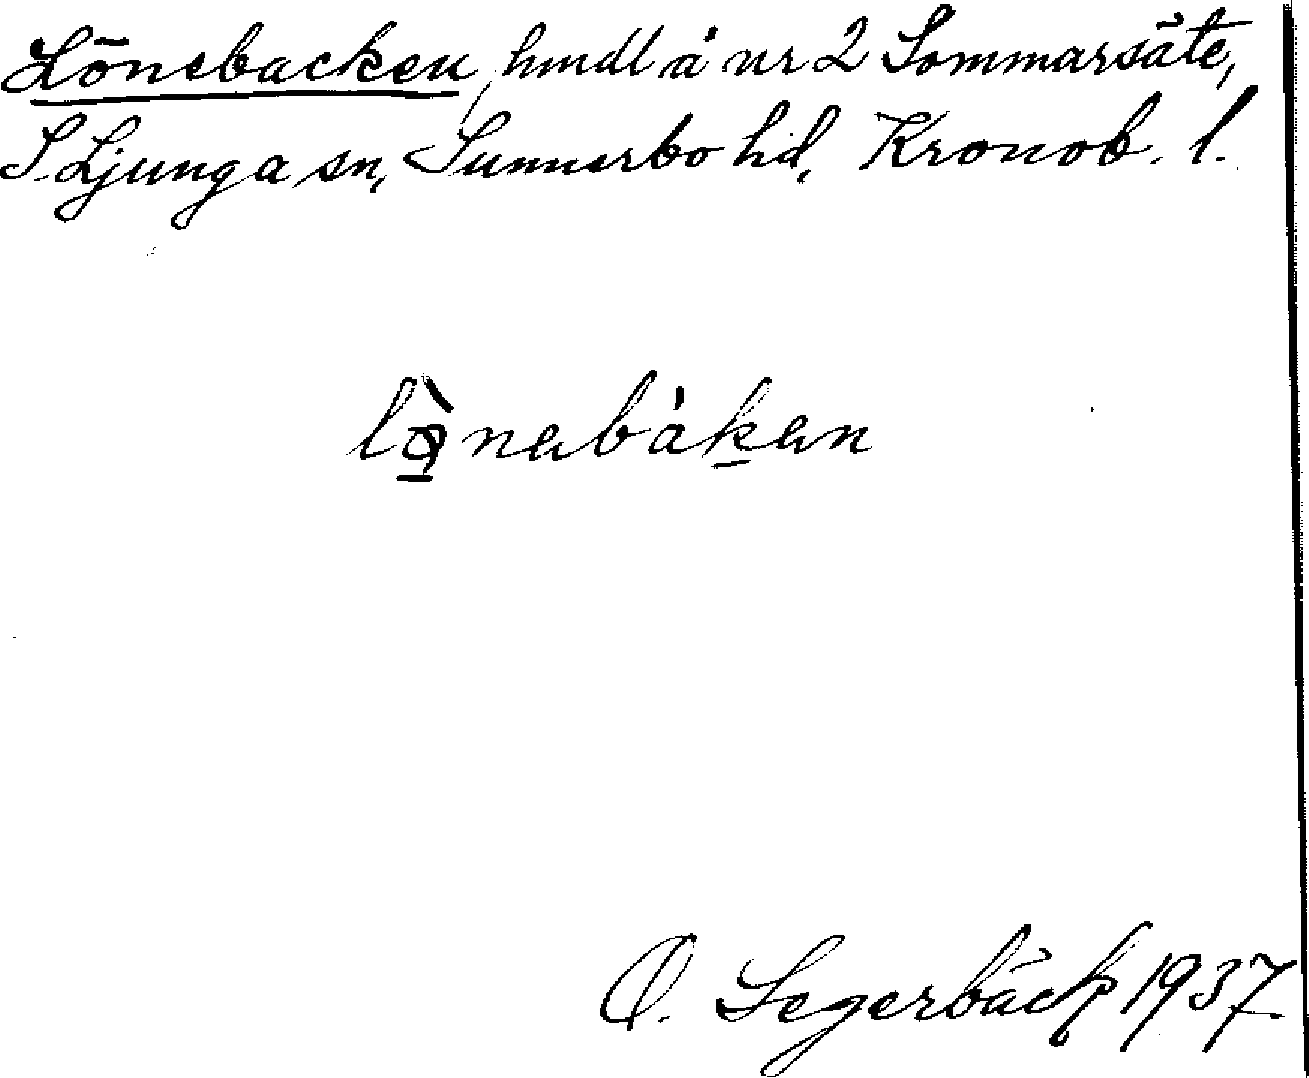 Lönebacken, hmdl å nr 2 Sommarsäte,
S. Ljunga sn, Sunnerbo hd, Kronob. l.
lò̱nabákan
O. Segerbäck 1937.